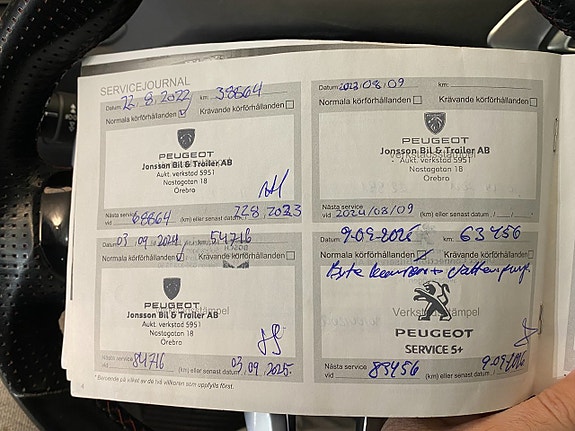 SERVICEJOURNAL
Datum 22.8.2022 km: 38864
Normala körförhållanden Krävande körförhållanden
PEUGEOT
Verkstadsstämpel
Jonsson Bil & Trailer AB
Aukt. verkstad 5951
Nastagatan 18
Örebro
Nästa service
vid 68864 (km) eller senast datum 22.8.2023
Datum: 2023/08/09
Normala körförhållanden Krävande körförhållanden
PEUGEOT
Verkstadsstämpel
Jonsson Bil & Trailer AB
Aukt. verkstad 5951
Nastagatan 18
Örebro
Nästa service
vid 2024/08/09 (km) eller senast datum
Datum 03.09.2024 54716
Normala körförhållanden Krävande körförhållanden
PEUGEOT
Verkstadsstämpel
Jonsson Bil & Trailer AB
Aukt. verkstad 5951
Nastagatan 18
Örebro
Nästa service
vid 84716 (km) eller senast datum 03.09.2025
9-09-2025 km: 63456
Normala körförhållanden Krävande körförhållanden
Byte kamrem + vattenpump.
Verkstadsstämpel
PEUGEOT
SERVICE 5+
Nästa service
vid 83456 (km) eller senast datum 9-09-2026
* Beroende på vilket av de två villkoren som uppfylls först.
4